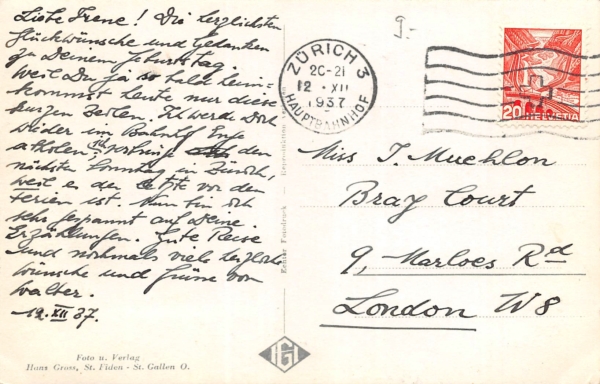 Liebe Irene! Die herzlichsten
Glückwünsche und Gedanken
zu Deinem Geburtstag.
Weil Du ja so bald heim-
kommst heute nur diese
kurzen Zeilen. Ich werde Dich
wieder im Bahnhof Enge
abholen; Ich den
nächsten Sonntag in Zürich,
weil es der letzte vor den
Ferien ist. Nun bin ich
sehr gespannt auf Deine
Erzählungen. Gute Reise
und nochmals viele herzliche
Wünsche und Grüsse von
Walter.
12. XII 37.
Foto u. Verlag
Hans Gross, St. Fiden - St. Gallen O.
Echter Fotodruck - Reproduktion
HGI
9.-
ZÜRICH 3
20-21
12. XII
1937
HAUPTBAHNHOF
20
HELVETIA
Miss I. Muehlon
Bray Court
9, Marloes Rd
London W8